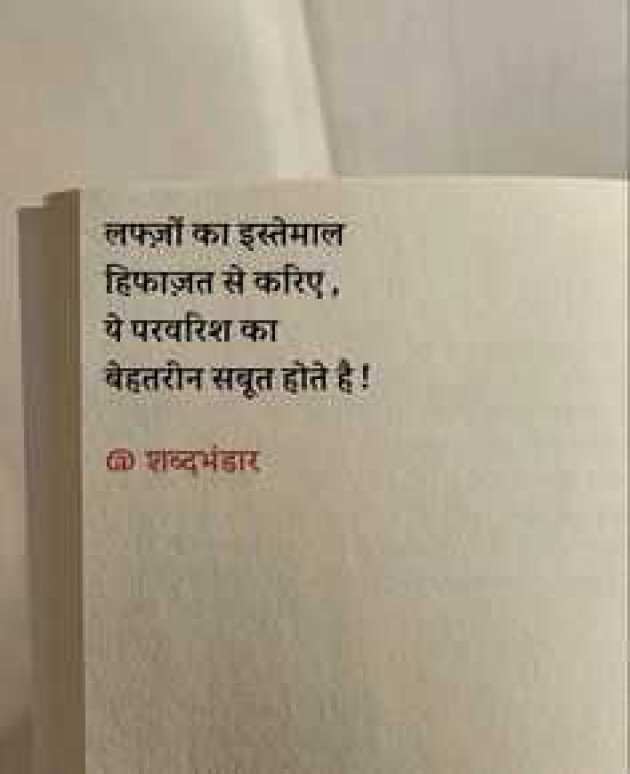 लफ्ज़ों का इस्तेमाल
हिफाज़त से करिए ,
ये परवरिश का
बेहतरीन सबूत होते है !
@ शब्दभंडार